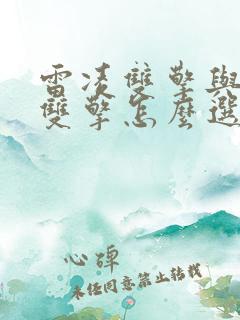 雷凌雙擎與
雙擎怎麼選
心碑
未经同意禁止转载